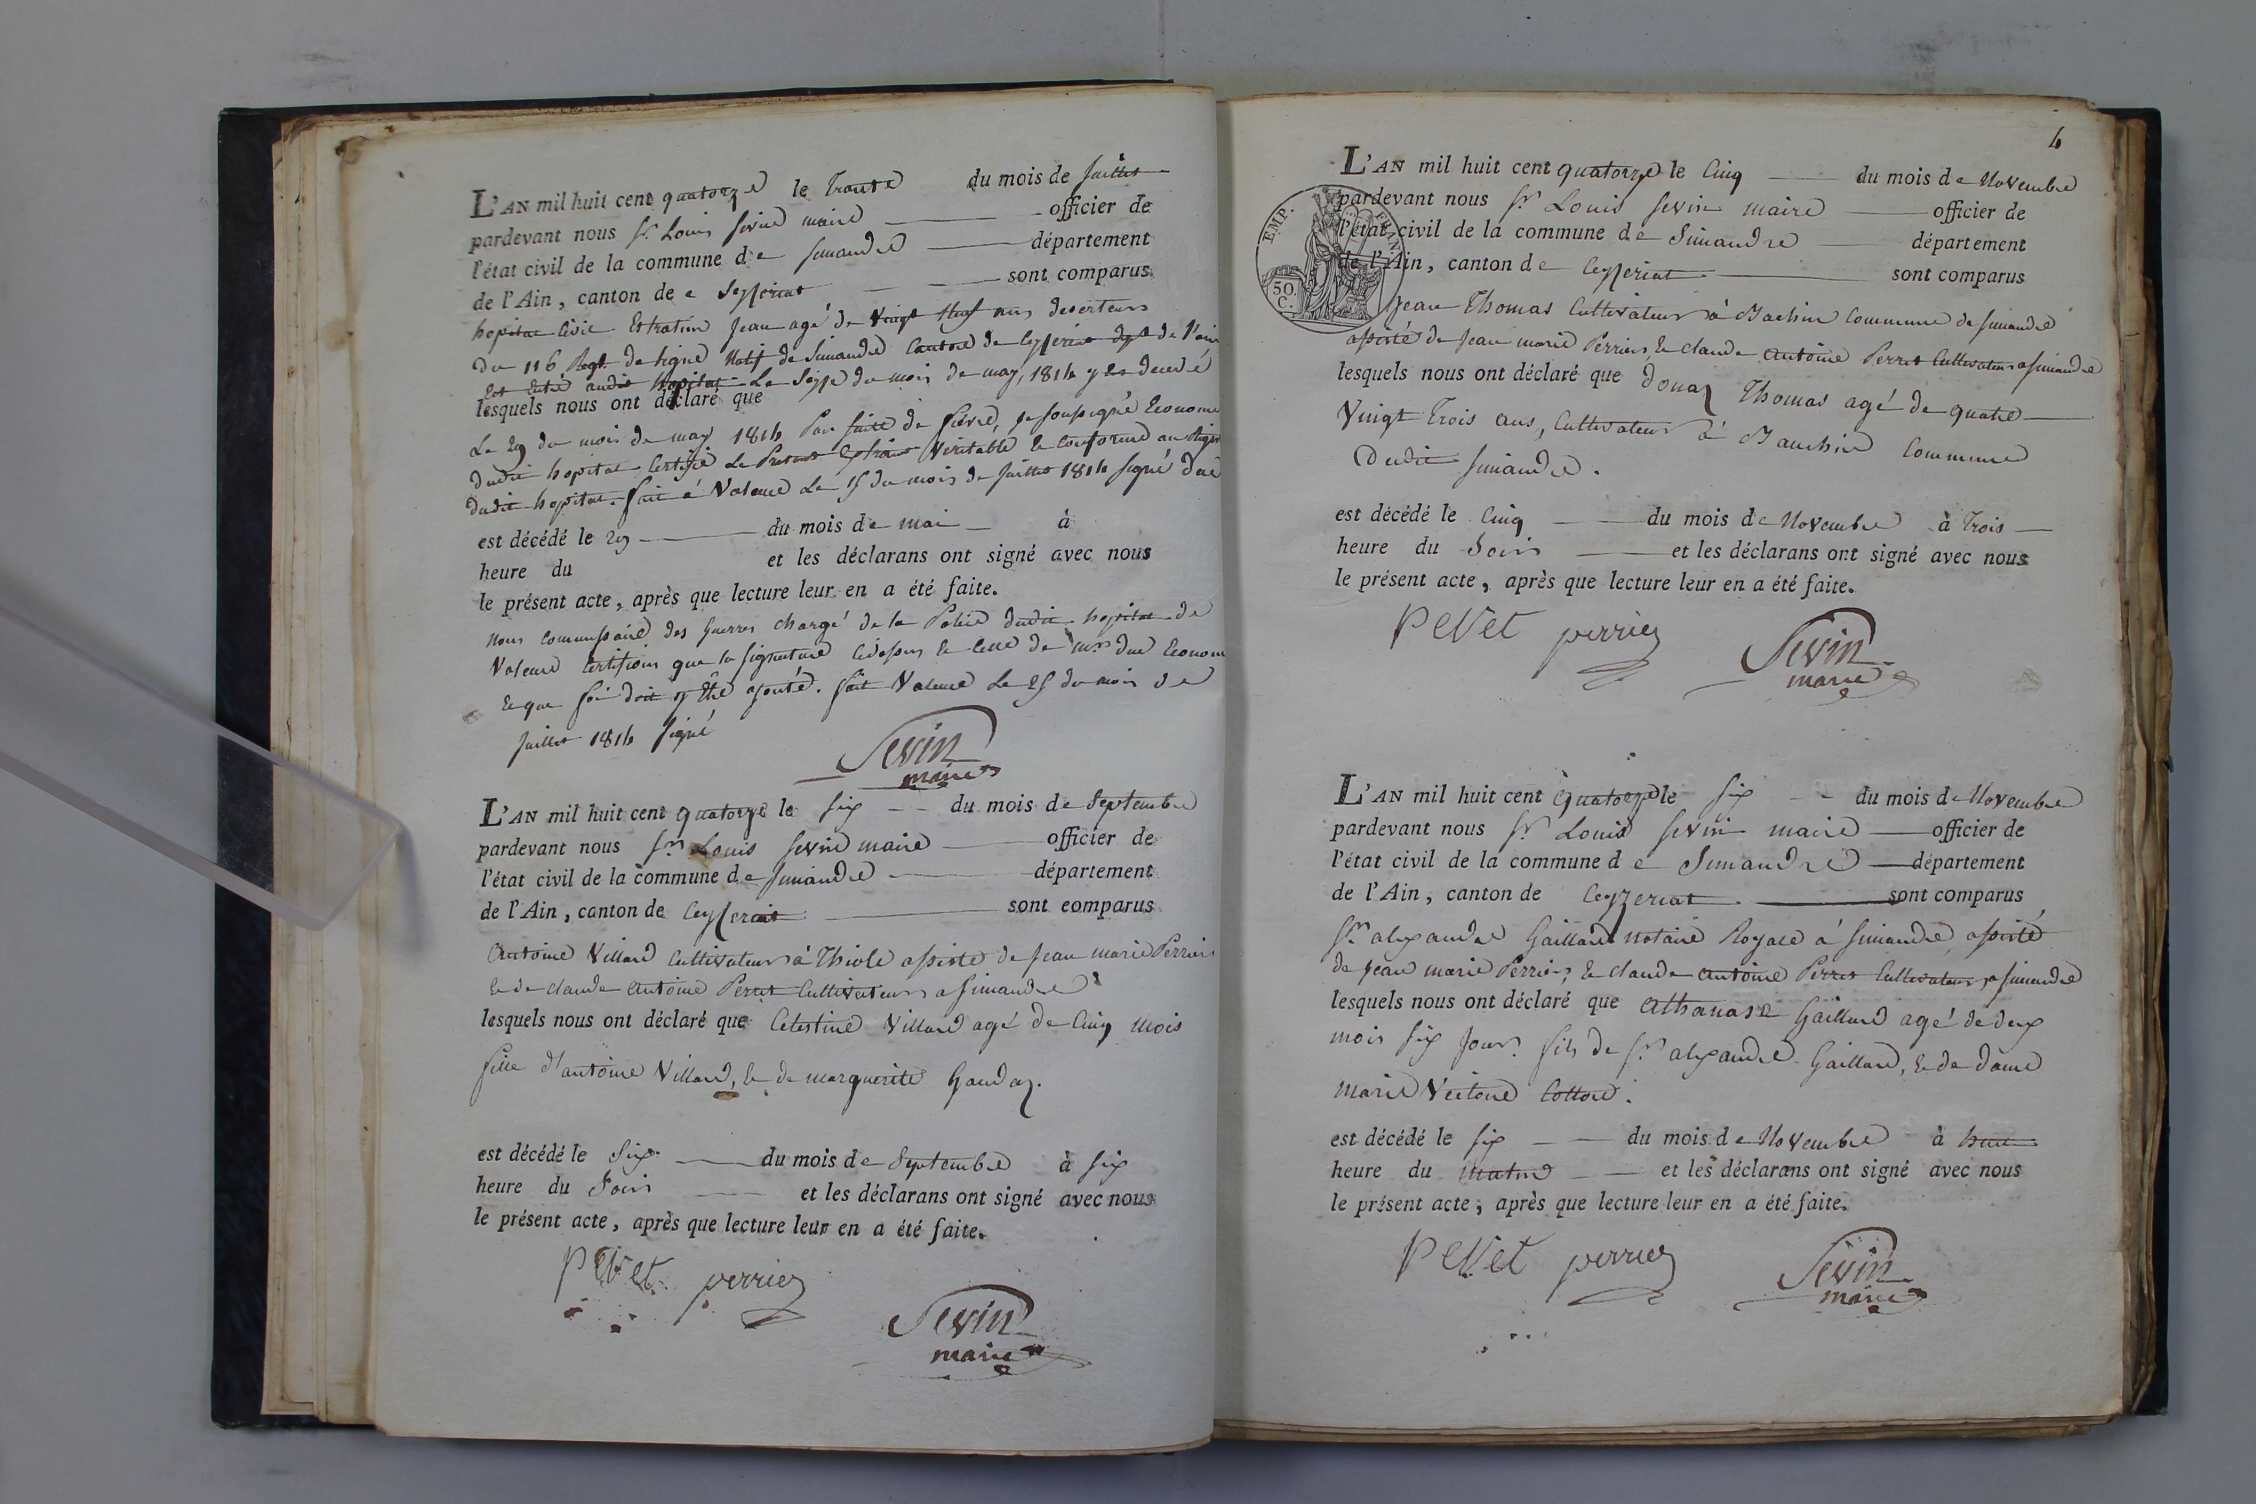 L'AN mil huit cent quatorze le Trante du mois de Juillet
pardevant nous Sr. Louis Sevin maire officier de
l'état civil de la commune de Simandre département
de l'Ain, canton de e Seyseriat sont comparus
hopital Civil Jean agé de Vingt Neuf ans
Du 116 Regt. de ligne Natif de Simandre Canton de Ceyseriat dept de l'ain
Est Entré audit hopital Le Seize du mois de may, 1814 y Est decedé
lesquels nous ont déclaré que
Le 29 du mois de may 1814 Par suite de fievre, je soussigné Econome
dudit hopital Certifie Le Present Extrait Veritable & Conforme au
dudit hopital. fait à Valence Le 15 du mois de Juillet 1814 signé Dué
est décédé le 29 du mois de mai à
heure du et les déclarans ont signé avec nous
le présent acte, après que lecture leur en a été faite.
Nous Commissaire des Guerres chargé de la Police dudit hopital de
Valence Certifions que la signature Cidessus Est Celle de Mr. Dué Econome
& que foi doit y Etre ajouté. fait Valence Le 25 du mois de
Juillet 1814 signé
Sevin
maire
L'AN mil huit cent quatorze le six du mois de Septembre
pardevant nous Sr. Louis Sevin maire officier de
l'état civil de la commune de Simandre département
de l'Ain, canton de Ceyseriat sont comparus
Antoine Villard Cultivateur à Thiole assisté de Jean marie Perrier
& de claude antoine Perret Cultivateurs a Simandre
lesquels nous ont déclaré que Celestine Villard agé de Cinq mois
fille d'antoine Villard, & de marguerite Gaudaz.
est décédé le Six du mois de Septembre à six
heure du Soir et les déclarans ont signé avec nous
le présent acte, après que lecture leur en a été faite.
PeRet perrier
Sevin
maire
4
EMP. FRAN
50 C.
L'AN mil huit cent quatorze le Cinq du mois de Novembre
pardevant nous Sr. Louis Sevin maire officier de
l'état civil de la commune de Simandre département
de l'Ain, canton de Ceyseriat sont comparus
Jean Thomas Cultivateur à Banchin Commune de Simandre
assisté de Jean marie Perrier, & claude antoine Perret Cultivateurs a Simandre
lesquels nous ont déclaré que Donaz Thomas agé de quatre
Vingt Trois ans, Cultivateur à Banchin Commune
Dudit Simandre.
est décédé le Cinq du mois de Novembre à Trois
heure du Soir et les déclarans ont signé avec nous
le présent acte, après que lecture leur en a été faite.
PeRet perrier
Sevin
maire
L'AN mil huit cent Quatorze le six du mois de Novembre
pardevant nous Sr. Louis Sevin maire officier de
l'état civil de la commune de Simandre département
de l'Ain, canton de Ceyzeriat sont comparus
Sr. alexandre Gaillard Notaire Royale à Simandre, assisté
de Jean marie Perrier, & claude antoine Perret Cultivateurs, a Simandre
lesquels nous ont déclaré que Athanase Gaillard agé de deux
mois six Jour. fils de Sr. alexandre Gaillard, & de dame
Marie Cotton.
est décédé le six du mois de Novembre à huit
heure du Matin et les déclarans ont signé avec nous
le présent acte, après que lecture leur en a été faite.
PeRet perrier
Sevin
maire